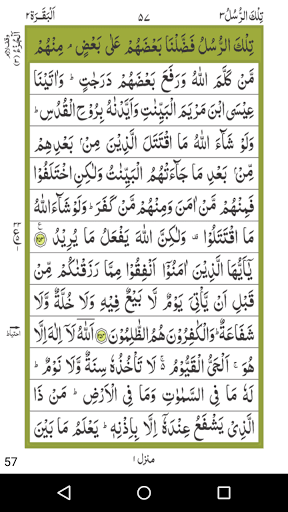 تِلْكَ الرُّسُلُ ٣ ٥٧ اَلْبَقَرَة ٢
تِلْكَ الرُّسُلُ فَضَّلْنَا بَعْضَهُمْ عَلٰى بَعْضٍ ۘ مِنْهُمْ
مَّنْ كَلَّمَ اللّٰهُ وَرَفَعَ بَعْضَهُمْ دَرَجٰتٍ ؕ وَاٰتَيْنَا
عِيْسَى ابْنَ مَرْيَمَ الْبَيِّنٰتِ وَاَيَّدْنٰهُ بِرُوْحِ الْقُدُسِ ؕ
وَلَوْ شَآءَ اللّٰهُ مَا اقْتَتَلَ الَّذِيْنَ مِنْۢ بَعْدِهِمْ
مِّنْۢ بَعْدِ مَا جَآءَتْهُمُ الْبَيِّنٰتُ وَلٰكِنِ اخْتَلَفُوْا
فَمِنْهُمْ مَّنْ اٰمَنَ وَمِنْهُمْ مَّنْ كَفَرَ ؕ وَلَوْ شَآءَ اللّٰهُ
مَا اقْتَتَلُوْا ۟ وَلٰكِنَّ اللّٰهَ يَفْعَلُ مَا يُرِيْدُ ۝٢٥٣
يٰۤاَيُّهَا الَّذِيْنَ اٰمَنُوْۤا اَنْفِقُوْا مِمَّا رَزَقْنٰكُمْ مِّنْ
قَبْلِ اَنْ يَّاْتِيَ يَوْمٌ لَّا بَيْعٌ فِيْهِ وَلَا خُلَّةٌ وَّلَا
شَفَاعَةٌ ؕ وَالْكٰفِرُوْنَ هُمُ الظّٰلِمُوْنَ ۝٢٥٤ اَللّٰهُ لَاۤ اِلٰهَ اِلَّا
هُوَ ۚ اَلْحَيُّ الْقَيُّوْمُ ۚ لَا تَاْخُذُهٗ سِنَةٌ وَّلَا نَوْمٌ ؕ
لَهٗ مَا فِي السَّمٰوٰتِ وَمَا فِي الْاَرْضِ ؕ مَنْ ذَا
الَّذِيْ يَشْفَعُ عِنْدَهٗۤ اِلَّا بِاِذْنِهٖ ؕ يَعْلَمُ مَا بَيْنَ
منزل ١
57